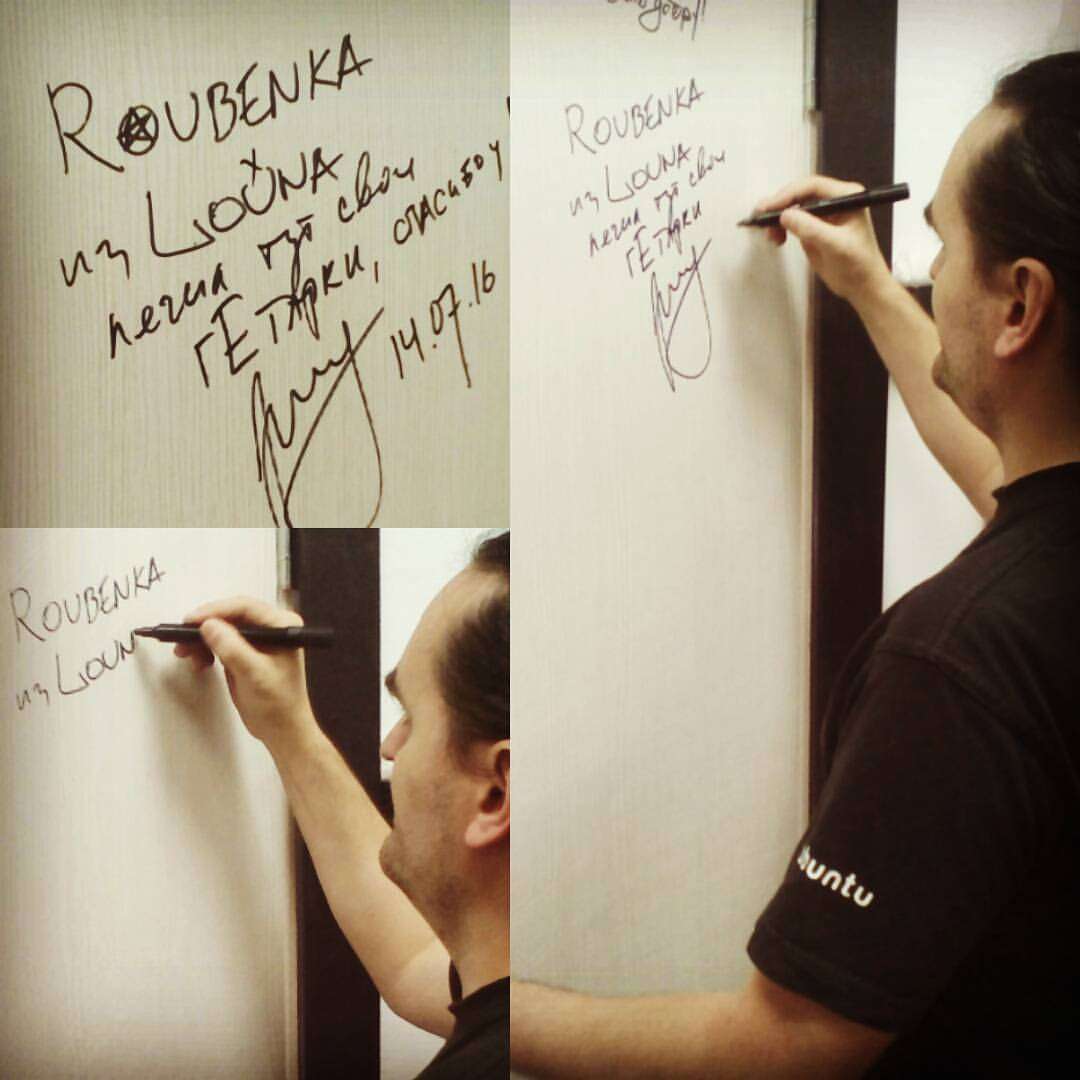 ROUBENKA
из LOUNA
свои
ГЁТАРКИ, СПАСИБОУ
14.07.16
ROUBENKA
из LOUNA
свои
ГЁТАРКИ
ROUBENKA
из LOUN
ubuntu